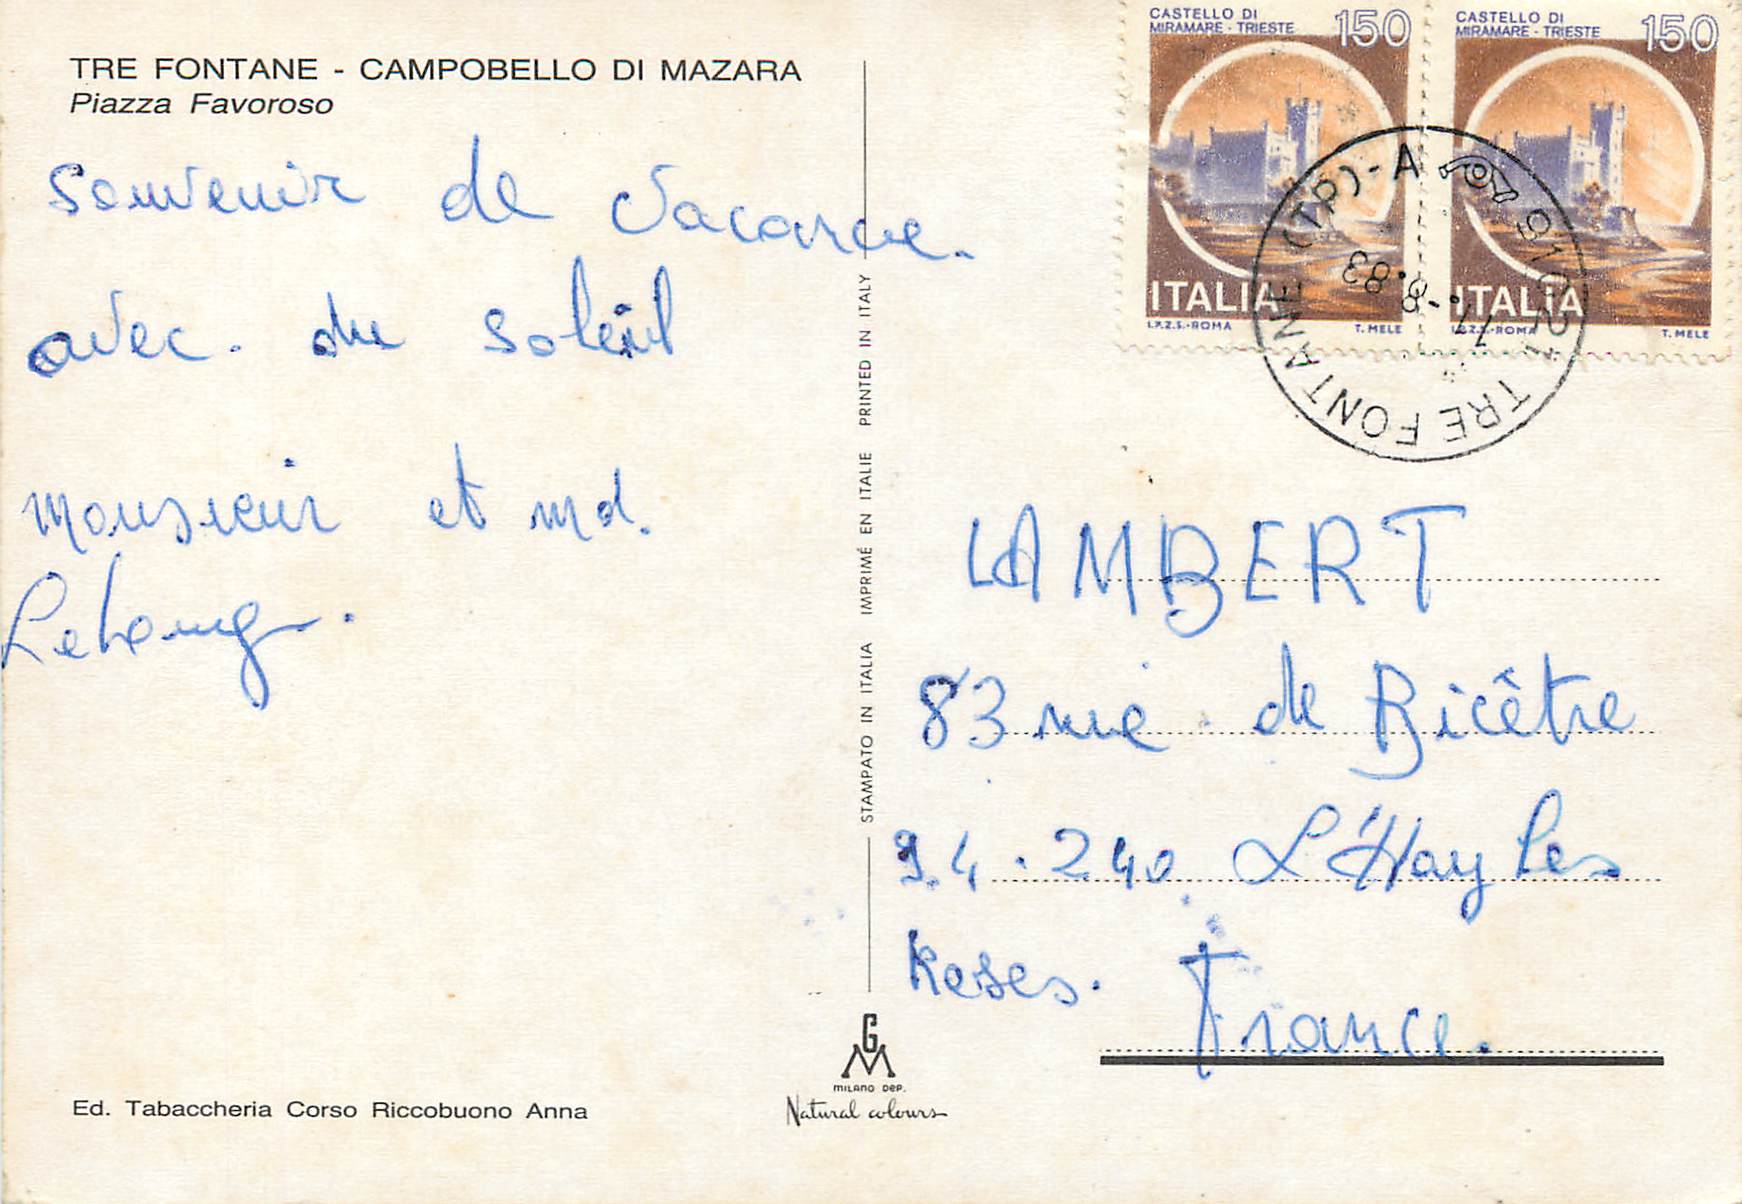 TRE FONTANE - CAMPOBELLO DI MAZARA
Piazza Favoroso
Souvenir de Vacance.
avec. du Soleil
Monsieur et md.
Lelong.
Ed. Tabaccheria Corso Riccobuono Anna
STAMPATO IN ITALIA IMPRIMÉ EN ITALIE PRINTED IN ITALY
GM
MILANO DEP.
Natural colours
CASTELLO DI
MIRAMARE - TRIESTE
150
ITALIA
I.P.Z.S.-ROMA T. MELE
CASTELLO DI
MIRAMARE - TRIESTE
150
ITALIA
I.P.Z.S.-ROMA T. MELE
91021 TRE FONTANE (TP) - A
-8.83
LAMBERT
83 rue de Bicêtre
94.240 L'Hay Les
Roses.
France.